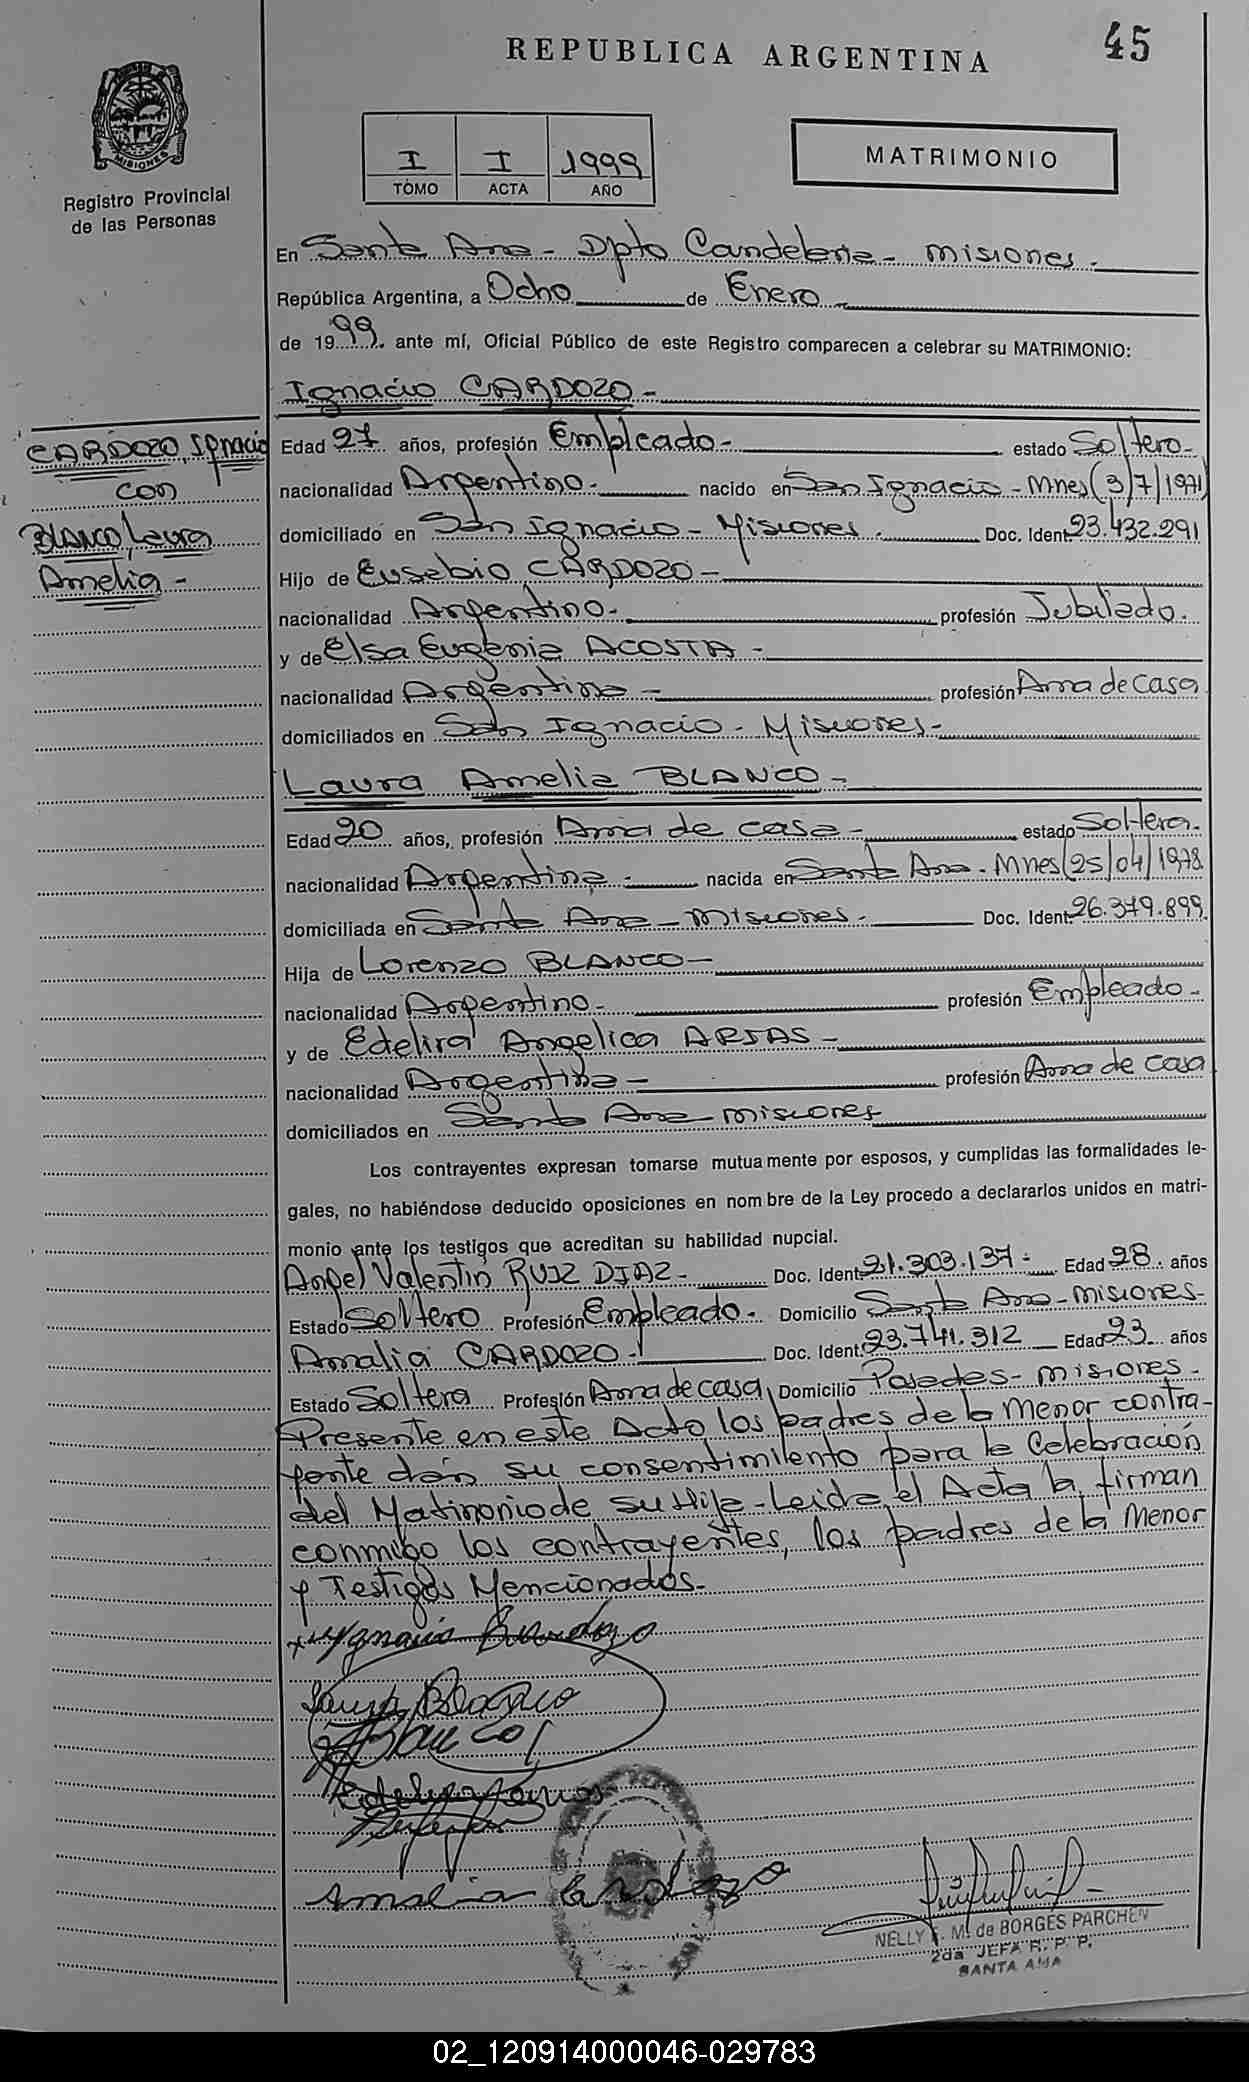 REPUBLICA ARGENTINA
45
MISIONES
Registro Provincial
de las Personas
I I 1999
TOMO ACTA AÑO
MATRIMONIO
En Santa Ana - Dpto Candelaria - Misiones -
República Argentina, a Ocho de Enero -
de 1999. ante mí, Oficial Público de este Registro comparecen a celebrar su MATRIMONIO:
Ignacio CARDOZO -
CARDOZO, Ignacio
con
BLANCO, Laura
Amelia -
Edad 27 años, profesión Empleado - estado Soltero -
nacionalidad Argentino - nacido en San Ignacio - Mnes (3/7/1971)
domiciliado en San Ignacio - Misiones - Doc. Ident. 23.432.291
Hijo de Eusebio CARDOZO -
nacionalidad Argentino - profesión Jubilado.
y de Elsa Eugenia ACOSTA -
nacionalidad Argentina - profesión Ama de Casa
domiciliados en San Ignacio - Misiones -
Laura Amelia BLANCO -
Edad 20 años, profesión Ama de casa - estado Soltera -
nacionalidad Argentina - nacida en Santa Ana - Mnes (25/04/1978
domiciliada en Santa Ana - Misiones - Doc. Ident. 26.379.899
Hija de Lorenzo BLANCO -
nacionalidad Argentino - profesión Empleado -
y de Edelira Angelica ARIAS -
nacionalidad Argentina - profesión Ama de casa
domiciliados en Santa Ana - Misiones
Los contrayentes expresan tomarse mutuamente por esposos, y cumplidas las formalidades le-
gales, no habiéndose deducido oposiciones en nombre de la Ley procedo a declararlos unidos en matri-
monio ante los testigos que acreditan su habilidad nupcial.
Angel Valentin RUIZ DIAZ - Doc. Ident. 21.303.137 - Edad 28 años
Estado Soltero Profesión Empleado - Domicilio Santa Ana - Misiones -
Amalia CARDOZO - Doc. Ident. 23.741.312 Edad 23 años
Estado Soltera Profesión Ama de casa, Domicilio Posadas - Misiones -
Presente en este Acto los padres de la Menor contra-
yente dán su consentimiento para la Celebración
del Matrimonio de su Hija - Leida el Acta la firman
conmigo los contrayentes, los padres de la Menor
y Testigos Mencionados -
Ignacio Cardozo
Laura Blanco
Blanco
Amalia Cardozo
NELLY M. de BORGES PARCHEN
2da JEFA R. P. P.
SANTA ANA
02_120914000046-029783